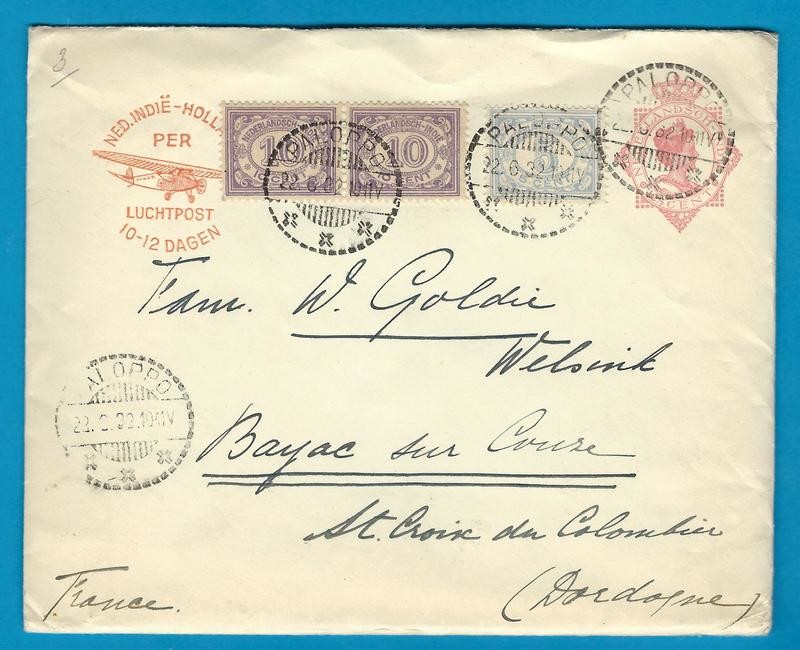 3
NED. INDIË-HOLLA
PER
LUCHTPOST
10-12 DAGEN
NEDERLANDSCH-INDIË
10
CENT
NEDERLANDSCH-INDIË
10
CENT
PALOPPO
22.6.32.10-11V
2
CENT
PALOPPO
22.6.32.10-11V
PALOPPO
22.6.32.10-11V
Fam. W. Goldie
Welsink
PALOPPO
22.6.32.10-11V
Bayac sur Couze
St. Croix du Colombier
France.
(Dordogne)